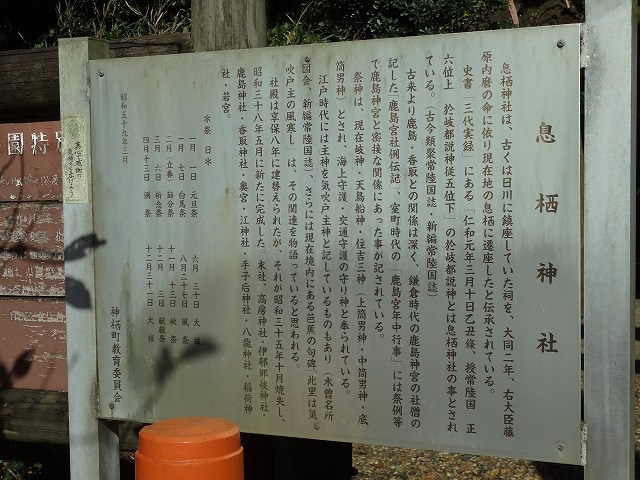 息栖神社
息栖神社は、古くは日川に鎮座していた祠を、大同二年、右大臣藤
原内麿の命に依り現在地の息栖に遷座したと伝承されている。
史書「三代実録」にある「仁和元年三月十日乙丑條、授常陸国 正
六位上 於岐都説神従五位下」の於岐都説神とは息栖神社の事とされ
ている。(古今類聚常陸国誌・新編常陸国誌)
古来より鹿島・香取との関係は深く、鎌倉時代の鹿島神宮の社僧の
記した「鹿島宮社例伝記」、室町時代の「鹿島宮年中行事」には祭例等
で鹿島神宮と密接な関係にあった事が記されている。
祭神は、現在岐神・天鳥船神・住吉三神(上筒男神・中筒男神・底
筒男神)とされ、海上守護・交通守護の守り神と奉られている。
江戸時代には主神を気吹戸主神と記しているものもあり(木曽名所
図会、新編常陸国誌)、さらには現在境内にある芭蕉の句碑「此里は気
吹戸主の風寒し」は、その関連を物語っていると思われる。
社殿は享保八年に建替えられたが、それが昭和三十五年十月焼失し、
昭和三十八年五月に新たに完成した。末社、高房神社・伊邪那岐神社・
鹿島神社・香取神社・奥宮・江神社・手子后神社・八龍神社・稲荷神
社・若宮。
*祭日*
一月一日 元旦祭 六月三十日 大祓
一月七日 白馬祭 八月二十七日 風祭
二月 立春 節分祭 十一月十三日 秋祭
三月六日 祈念祭 十二月三日 献穀祭
四月十三日 例祭 十二月三十一日 大祓
昭和五十九年三月
神栖町教育委員会
特園